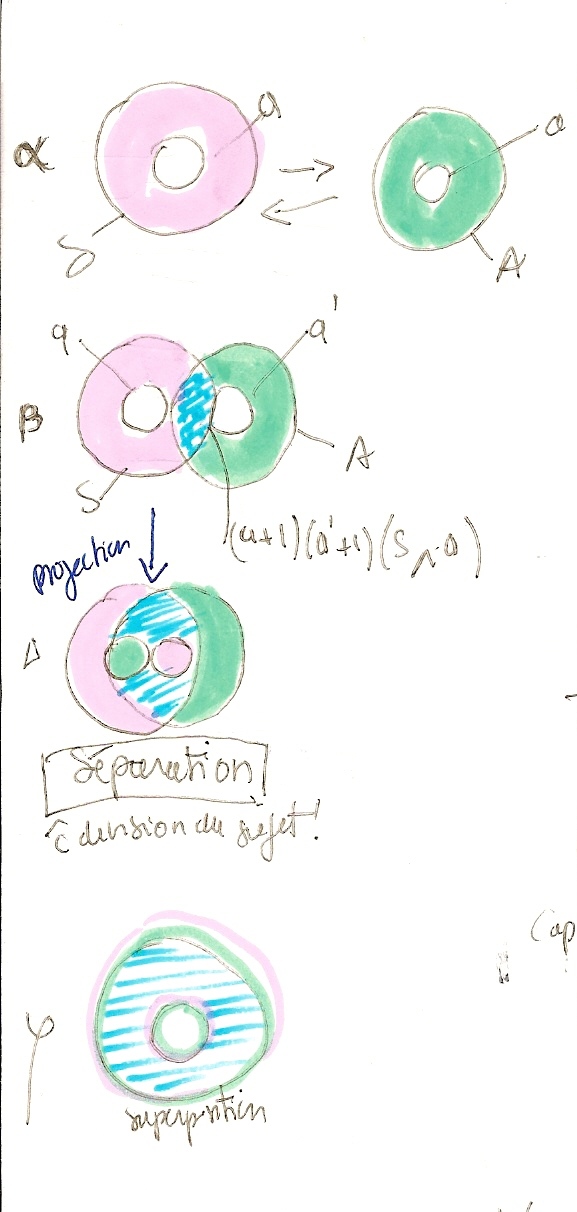 α
a
a
S
A
a
a'
β
A
S
(a+1)(a'+1)(S∧a)
projection
Δ
Séparation
ĉ division du sujet!
Cap
φ
superposition